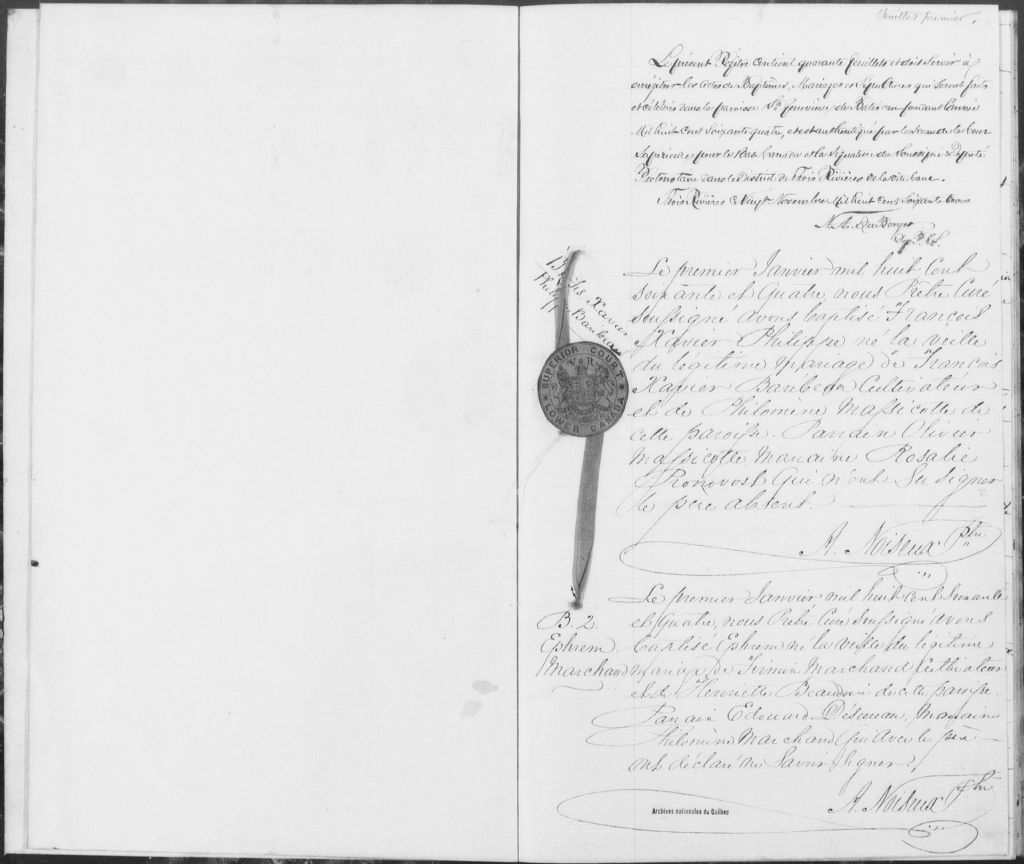 Feuillet premier.
Le présent Régistre contient quarante feuillets et doit servir à
enrégistrer les Actes de Baptêmes, Mariages et Sépultures qui seront faits
et célébrés dans la paroisse Ste Geneviève de Batiscan pendant l'année
Mil huit cent soixante quatre, et est authentiqué par le sceau de la Cour
Supérieure pour le Bas Canada et la signature du Soussigné Député
Protonotaire dans le District de Trois Rivières de la dite Cour.
Trois Rivières Ce Vingt Novembre Mil huit cent soixante trois
Dep P. C.S.
B
Frs Xavier
Philippe Baribeau
SUPERIOR COURT
V R
LOWER CANADA
Le premier Janvier mil huit Cent
soixante et Quatre, nous Prêtre Curé
soussigné avons baptisé François
Xavier Philippe né la veille
du légitime mariage de François
Xavier Baribeau Cultivateur
et de Philomène Massicotte de
cette paroisse. Parrain Olivier
Massicotte, Marraine Rosalie
Pronovost Qui n'ont su signer
le père absent.
A. Noiseux Ptre
B. 2.
Ephrem
Marchand
Le premier Janvier mil huit Cent Soixante
et Quatre, nous Prêtre Curé soussigné avons
baptisé Ephrem né la veille du légitime
mariage de Firmin Marchand Cultivateur
et de Henriette Beaudoin de cette paroisse.
Parrain Edouard Désureau, Marraine
Philomène Marchand Qui avec le père
ont déclaré ne savoir signer.
A. Noiseux Ptre
Archives nationales du Québec